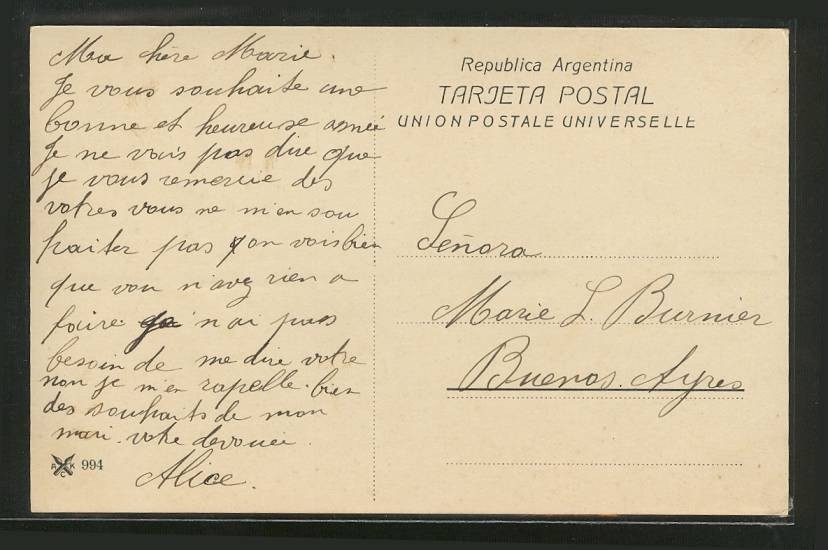 Ma chère Marie.
Je vous souhaite une
bonne et heureuse année
Je ne vais pas dire que
je vous remercie des
votres vous ne m'en sou
haiter pas on vois bien
que vou n'avez rien a
faire n'ai pas
besoin de me dire votre
non je m'en rapelle. bien
des souhaits de mon
mari. votre devouée.
Alice.
A K C 994
Republica Argentina
TARJETA POSTAL
UNION POSTALE UNIVERSELLE
Señora
Marie L. Burnier
Buenos. Ayres